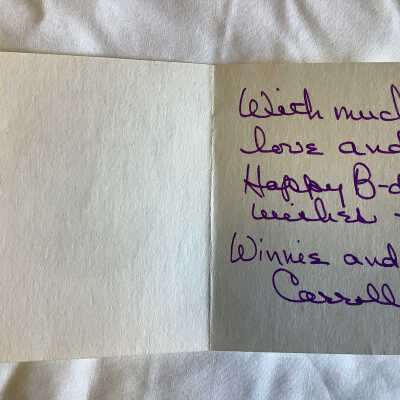 With muc
love and
Happy B-d
wishes -
Winnie and
Carroll